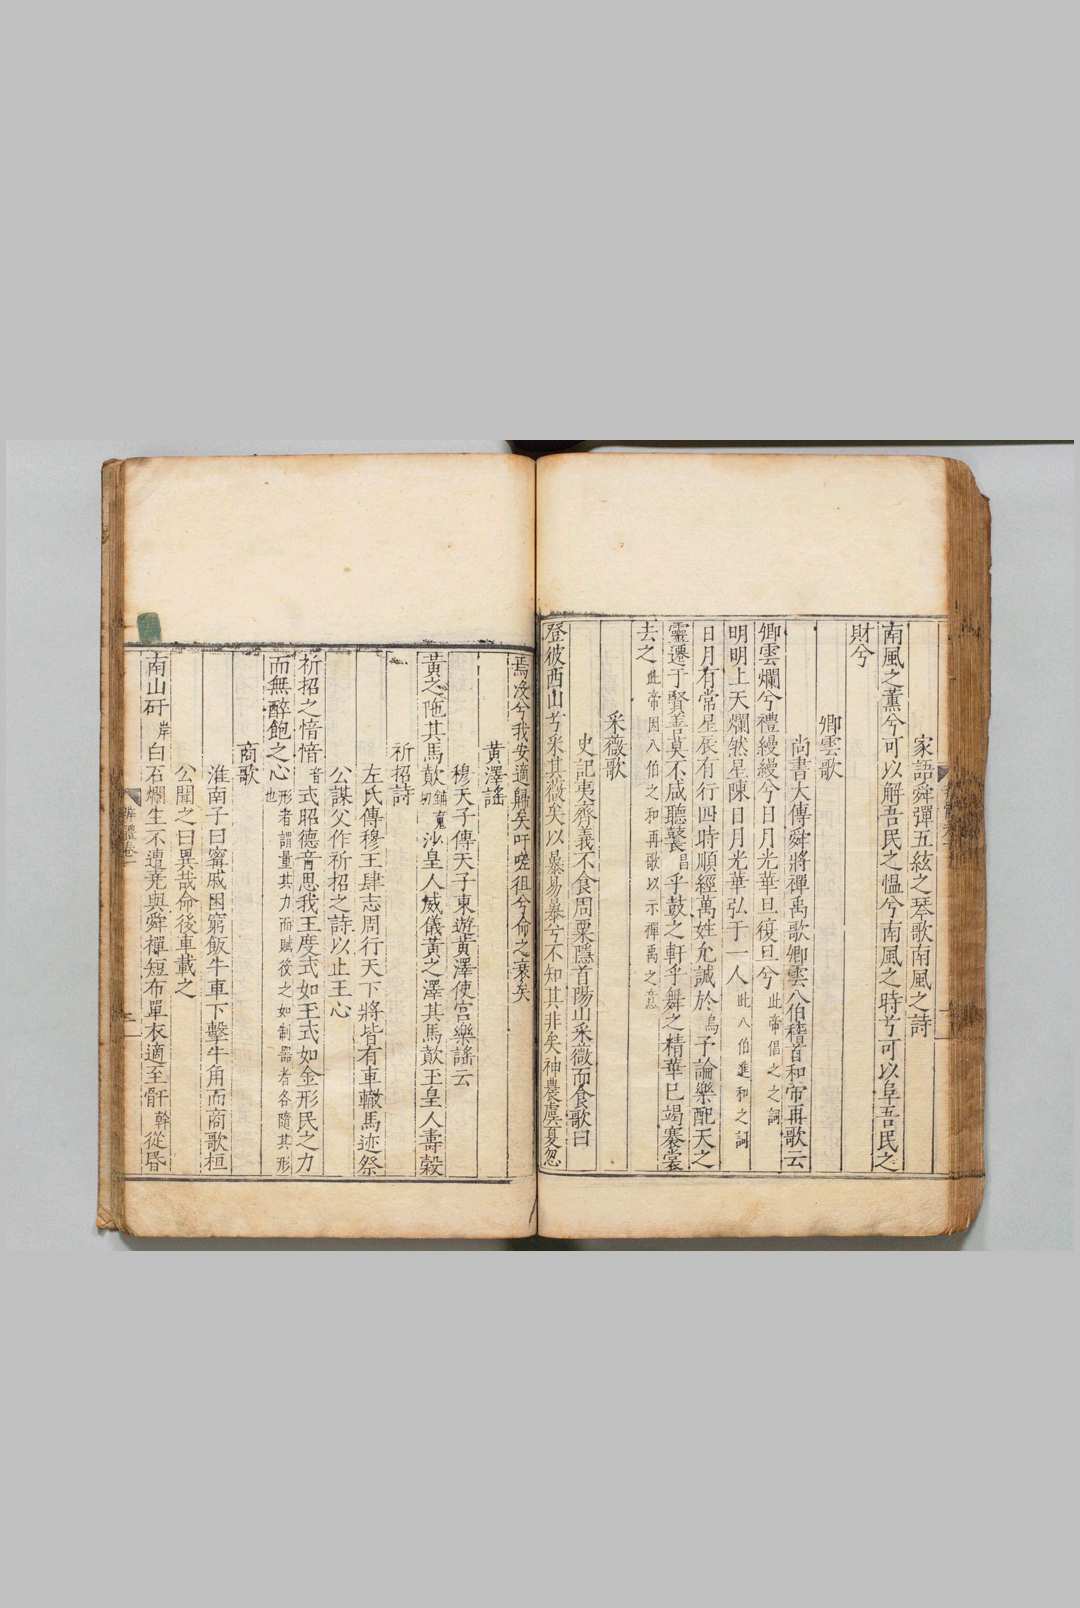 家語舜彈五絃之琴歌南風之詩
南風之薰兮可以解吾民之慍兮南風之時兮可以阜吾民之
財兮
卿雲歌
尚書大傳舜將禪禹歌卿雲八伯稽首和帝再歌云
卿雲爛兮禮縵縵兮日月光華旦復旦兮此帝倡之之詞
明明上天爛然星陳日月光華弘于一人此八伯進和之詞
日月有常星辰有行四時順經萬姓允誠於烏予論樂配天之
靈遷于賢善莫不咸聽鼚昌乎鼓之軒乎舞之精華已竭褰裳
去之此帝因八伯之和再歌以示禪禹之意
采薇歌
史記夷齊義不食周粟隱首陽山采薇而食歌曰
登彼西山兮采其薇矣以暴易暴兮不知其非矣神農虞夏忽
焉沒兮我安適歸矣吁嗟徂兮命之衰矣
黃澤謠
穆天子傳天子東遊黃澤使宮樂謠云
黃之陁其馬歕鋪䰟切沙皇人威儀黃之澤其馬歕玉皇人壽榖
祈招詩
左氏傳穆王肆志周行天下將皆有車轍馬迹祭
公謀父作祈招之詩以止王心
祈招之愔愔音式昭德音思我王度式如玉式如金形民之力
而無醉飽之心形者謂量其力而賦役之如制器者各隨其形也
商歌
淮南子曰甯戚困窮飯牛車下擊牛角而商歌桓
公聞之曰異哉命後車載之
南山矸岸白石爛生不遭堯與舜禪短布單衣適至骭幹從昏
辨體卷一